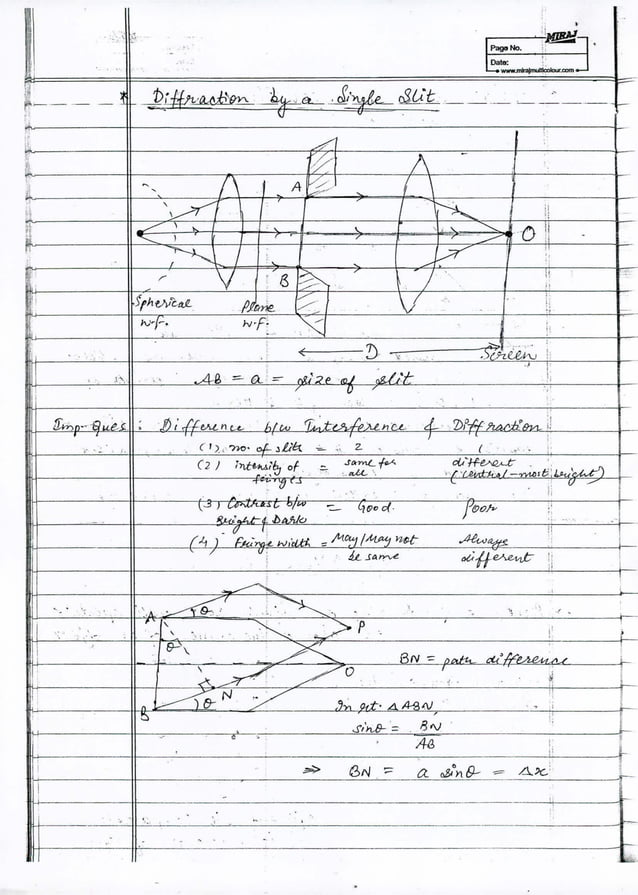 MIRAJ
Page No.
Date:
www.mirajmulticolour.com
* Diffraction by a Single Slit
A
O
B
Spherical w.f.
Plane w.f.
D
Screen
AB = a = size of slit
Imp-Ques : Difference b/w Interference & Diffraction
(1) no. of slits = 2 1
(2) intensity of fringes = same for all different (central-most bright)
(3) Contrast b/w Bright & Dark = Good. Poor
(4) Fringe width = May/May not be same Always different
A θ P
θ
O
N
B θ
BN = path difference
In rt. Δ ABN,
sinθ = BN
AB
⇒ BN = a sinθ = Δx